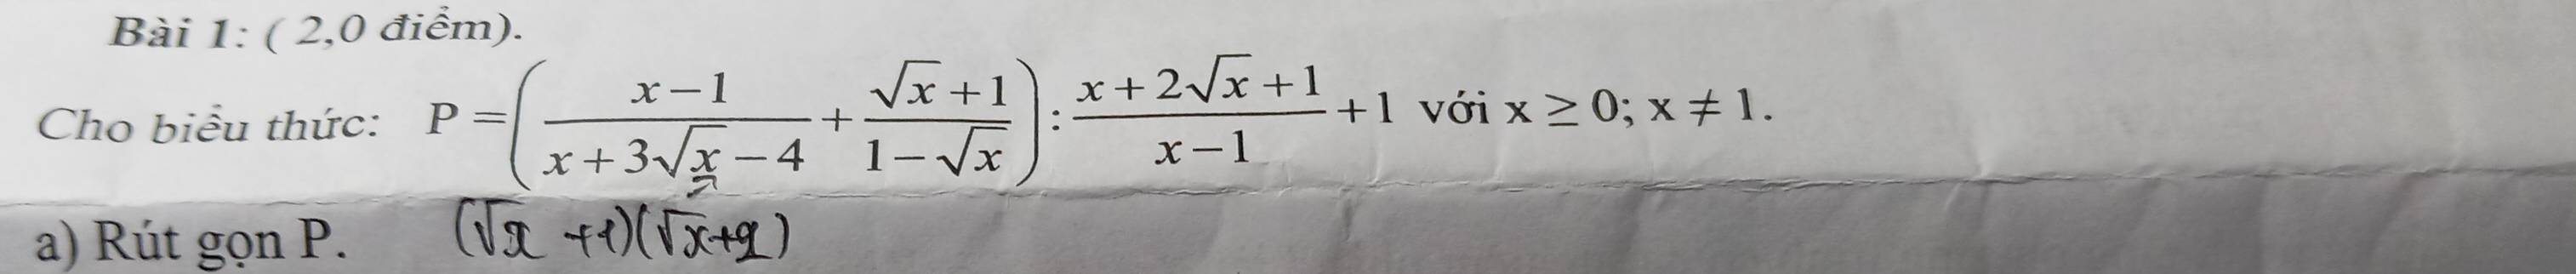 Bài 1: ( 2,0 điểm).
Cho biểu thức: P = ( (x − 1)/(x + 3√x − 4) + (√x + 1)/(1 − √x) ) : (x + 2√x + 1)/(x − 1) + 1 với x ≥ 0; x ≠ 1.
a) Rút gọn P. (√x +1)(√x+